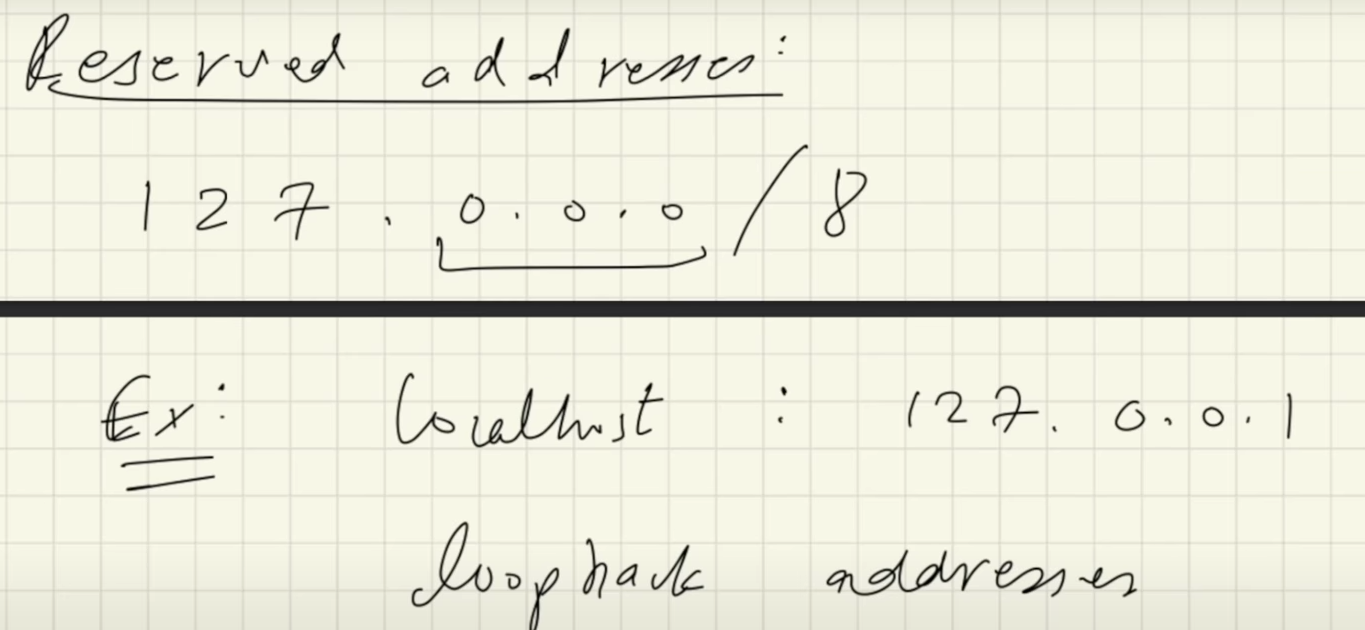 Reserved addresses:
127.0.0.0/8
Ex: Localhost : 127.0.0.1
loopback addresses